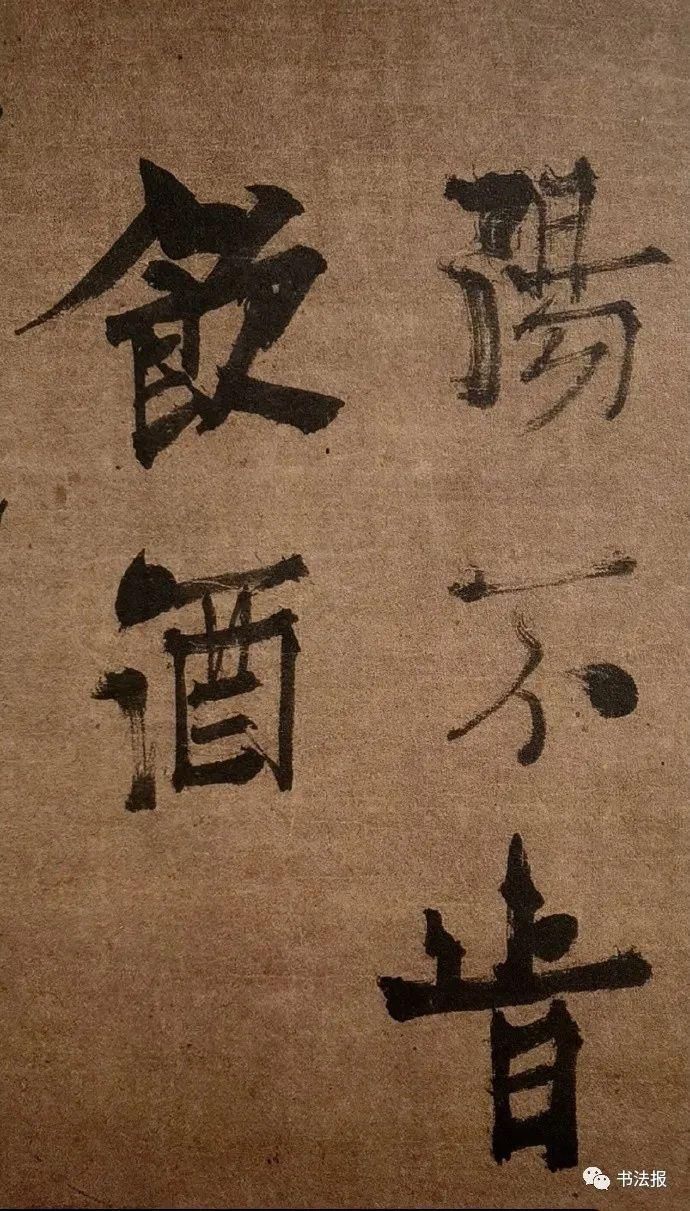 陽不肯
飲酒
书法报